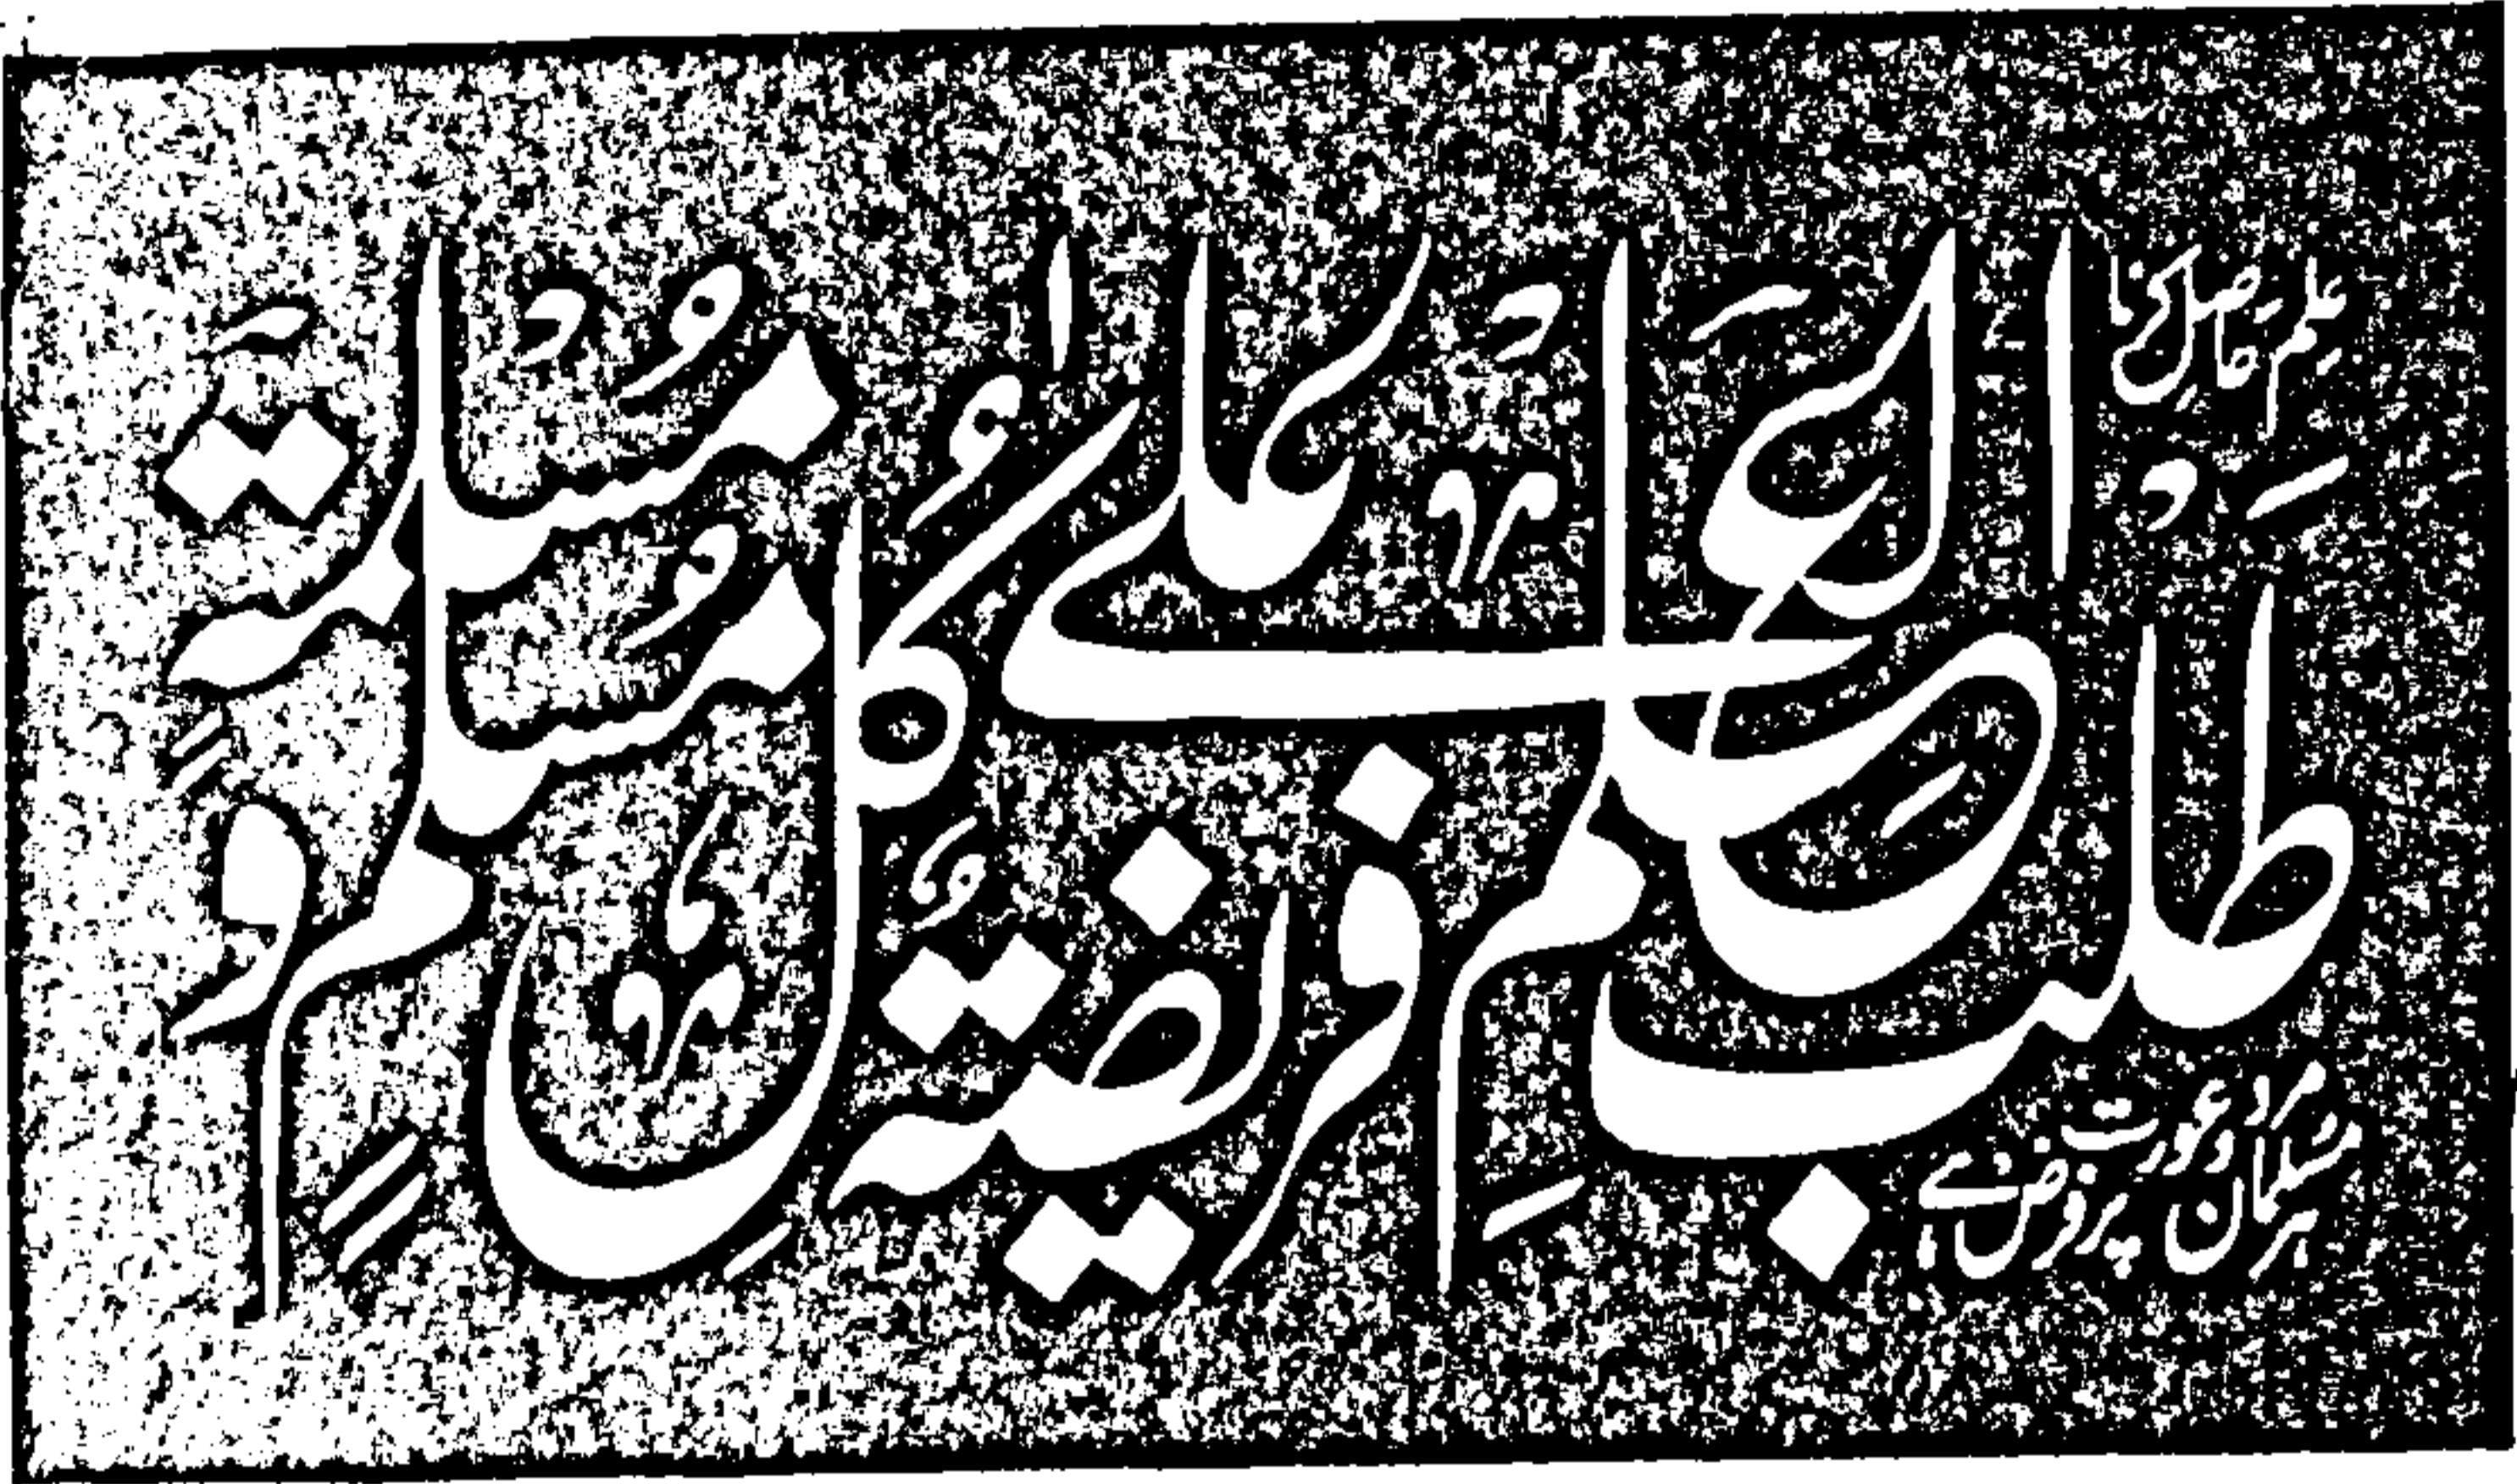 علم حاصل کرنا
طَلَبُ الْعِلْمِ فَرِیضَةٌ عَلٰی کُلِّ مُسْلِمٍ وَّ مُسْلِمَةٍ
ہر مسلمان مرد و عورت پر فرض ہے